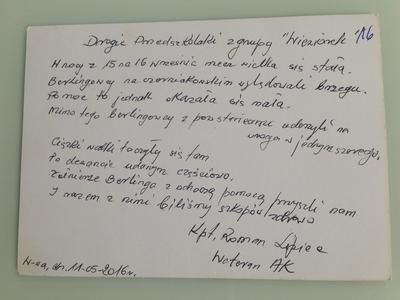 Drogie Przedszkolaki z grupy "Wiezionek 116
W nocy z 15 na 16 wrzesnia rzecz wielka się stała.
Berlingowcy na czerniakowskim wylądowali brzegu.
Pomoc to jednak okazała się mała.
Mimo tego berlingowcy z powstańcami uderzyli na
wroga w jednym szeregu.
Ciężki walki toczyły się tam
Po desancie udanym częściowo.
Żołnierze Berlinga z ochoczą pomocą przyszli nam
I razem z nimi biliśmy szkopów zdrowo
Kpt. Roman
Weteran AK
W-wa, dn. 11-05-2016r.